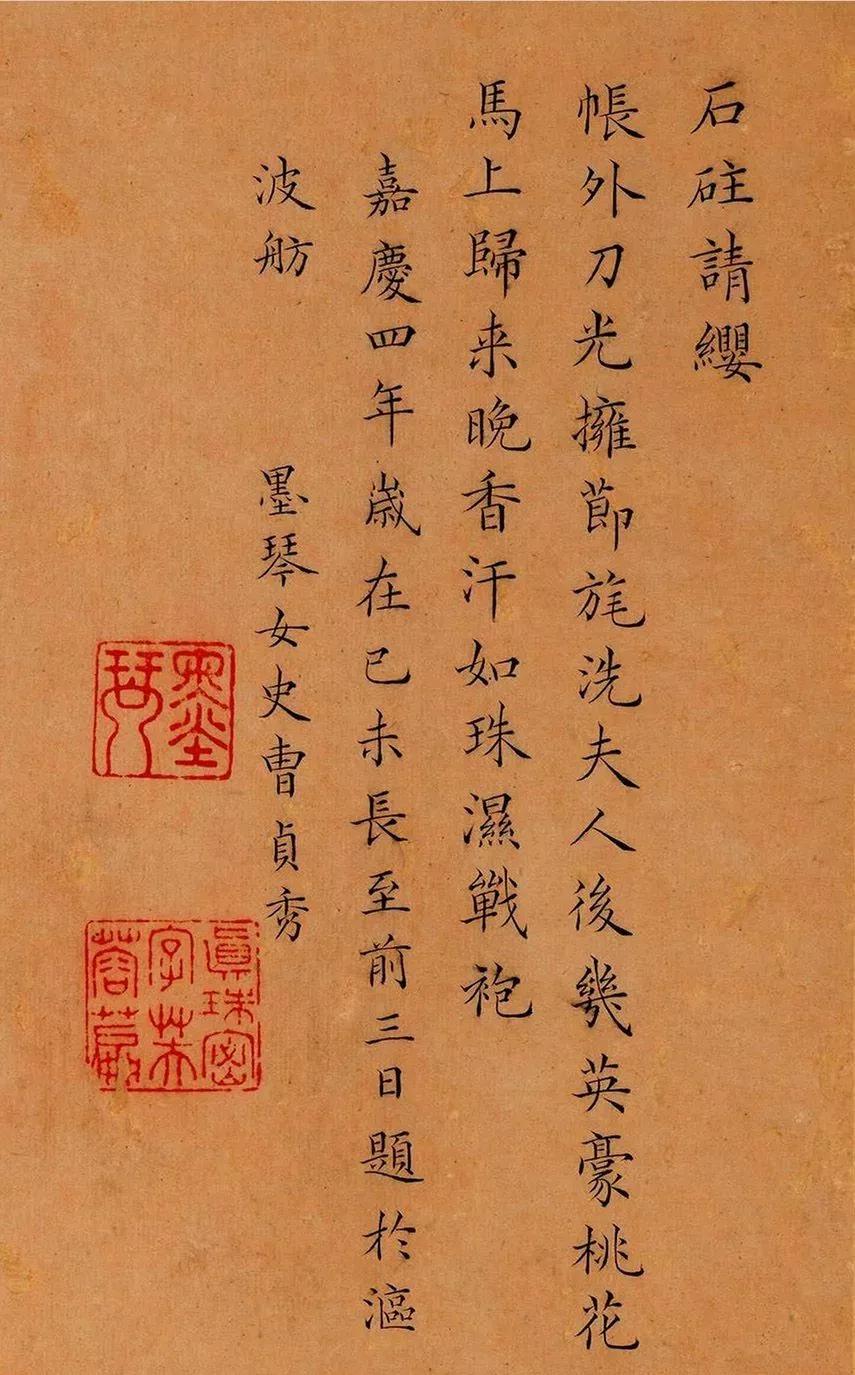 石砫請纓
帳外刀光擁節旄洗夫人後幾英豪桃花
馬上歸来晚香汗如珠濕戰袍
嘉慶四年歲在已未長至前三日題於漚
波舫　墨琴女史曹貞秀
墨琴
真珠密字芙蓉